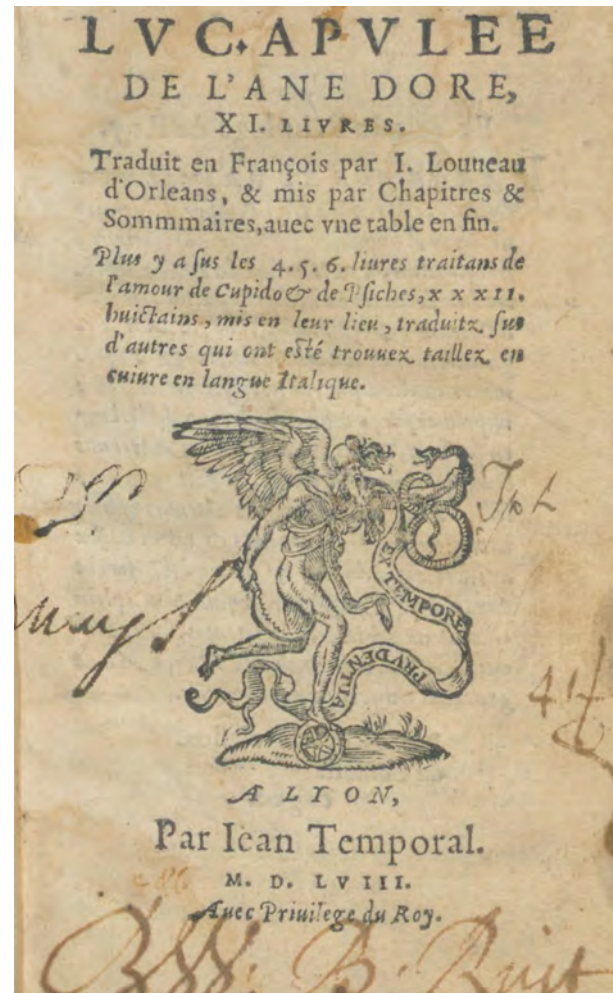 LVC. APVLEE
DE L'ANE DORE,
XI. LIVRES.
Traduit en François par I. Louueau
d'Orleans, & mis par Chapitres &
Sommmaires, auec vne table en fin.
Plus y a sus les 4. 5. 6. liures traitans de
l'amour de Cupido & de Psiches, x x x 11.
huictains, mis en leur lieu, traduitz sus
d'autres qui ont esté trouuez taillez en
cuiure en langue Italique.
EX TEMPORE
PRVDENTIA
A LYON,
Par Iean Temporal.
M. D. LVIII.
Auec Priuilege du Roy.